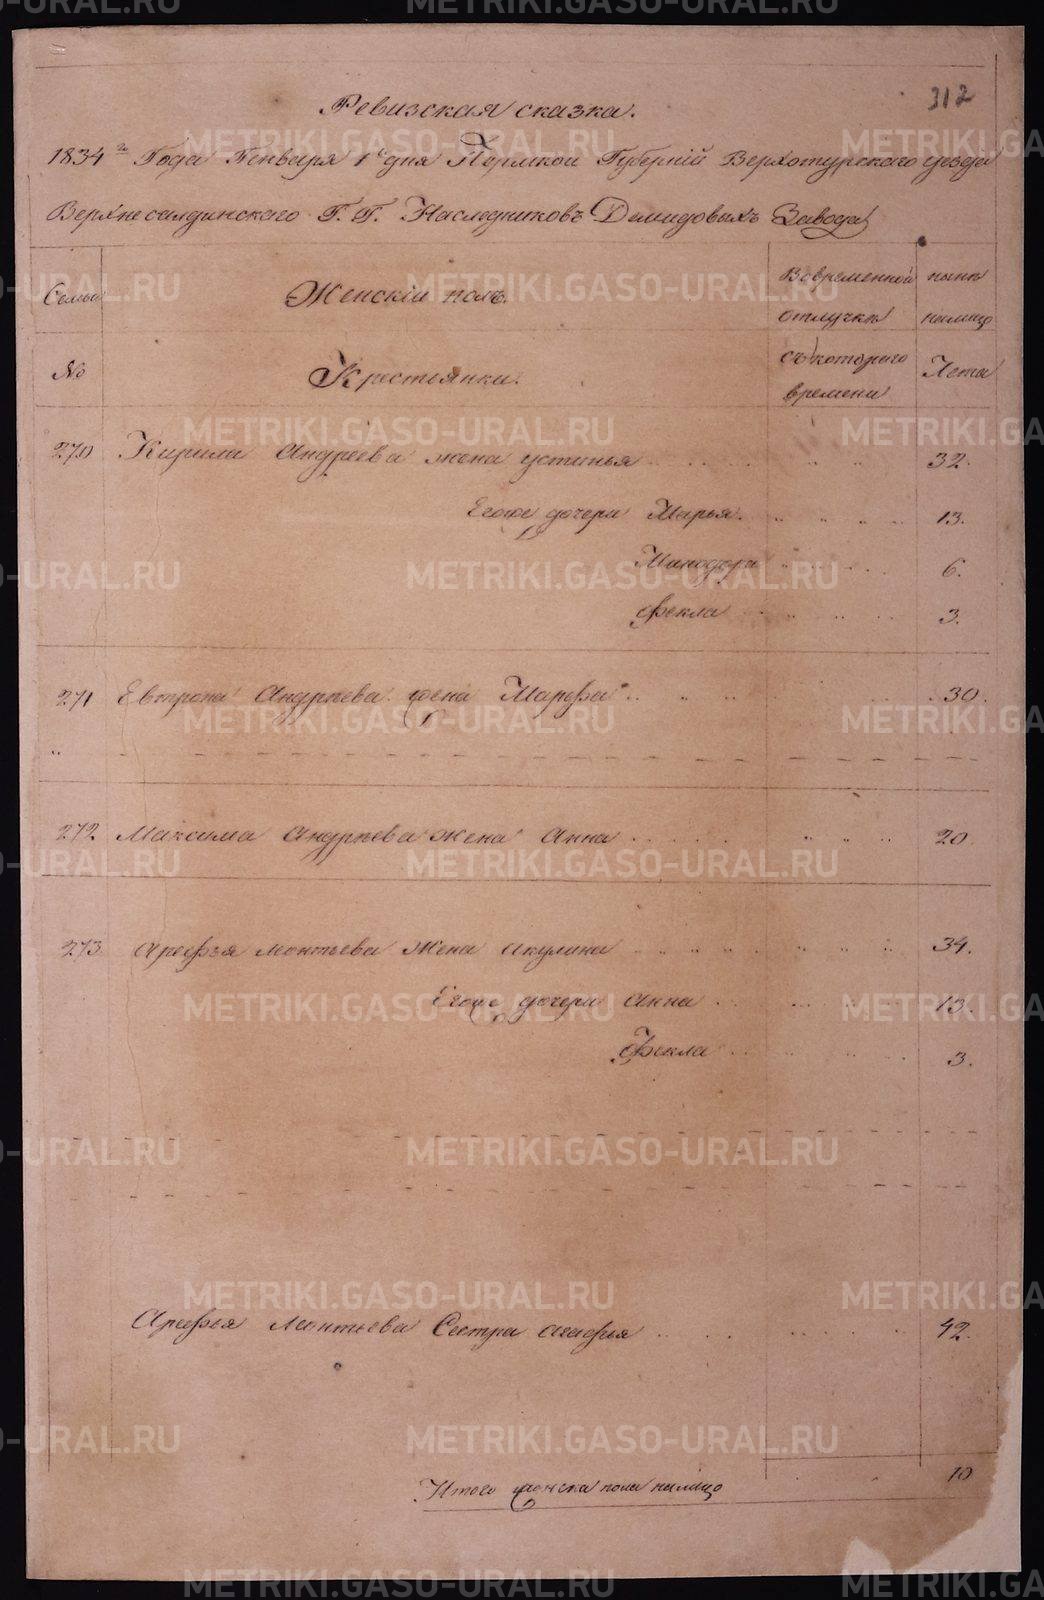 312
Ревизская сказка.
1834го Года Генваря 1го дня Пермской Губерніи Верхотурского уезда
Верхнесалдинского Г.Г. Наследниковъ Демидовыхъ Завода
Семьи
Женскій полъ.
Во временной отлучки
ныне налицо
№
Крестьянки.
съ которого времени
Лета
270 Кирила Андреева жена устинья 32.
Егоже дочери Марья. 13.
Минодора 6.
Фекла 3.
271 Евтропа Андреева жена Марфа 30.
272 Максима Андреева жена Анна 20
273 Арефья Леонтьева Жена Акулина 34.
Егоже дочери Анна 13.
Фекла 3.
Арефья Леонтьева Сестра агафья 42.
Итого женска пола налицо 10
METRIKI.GASO-URAL.RU